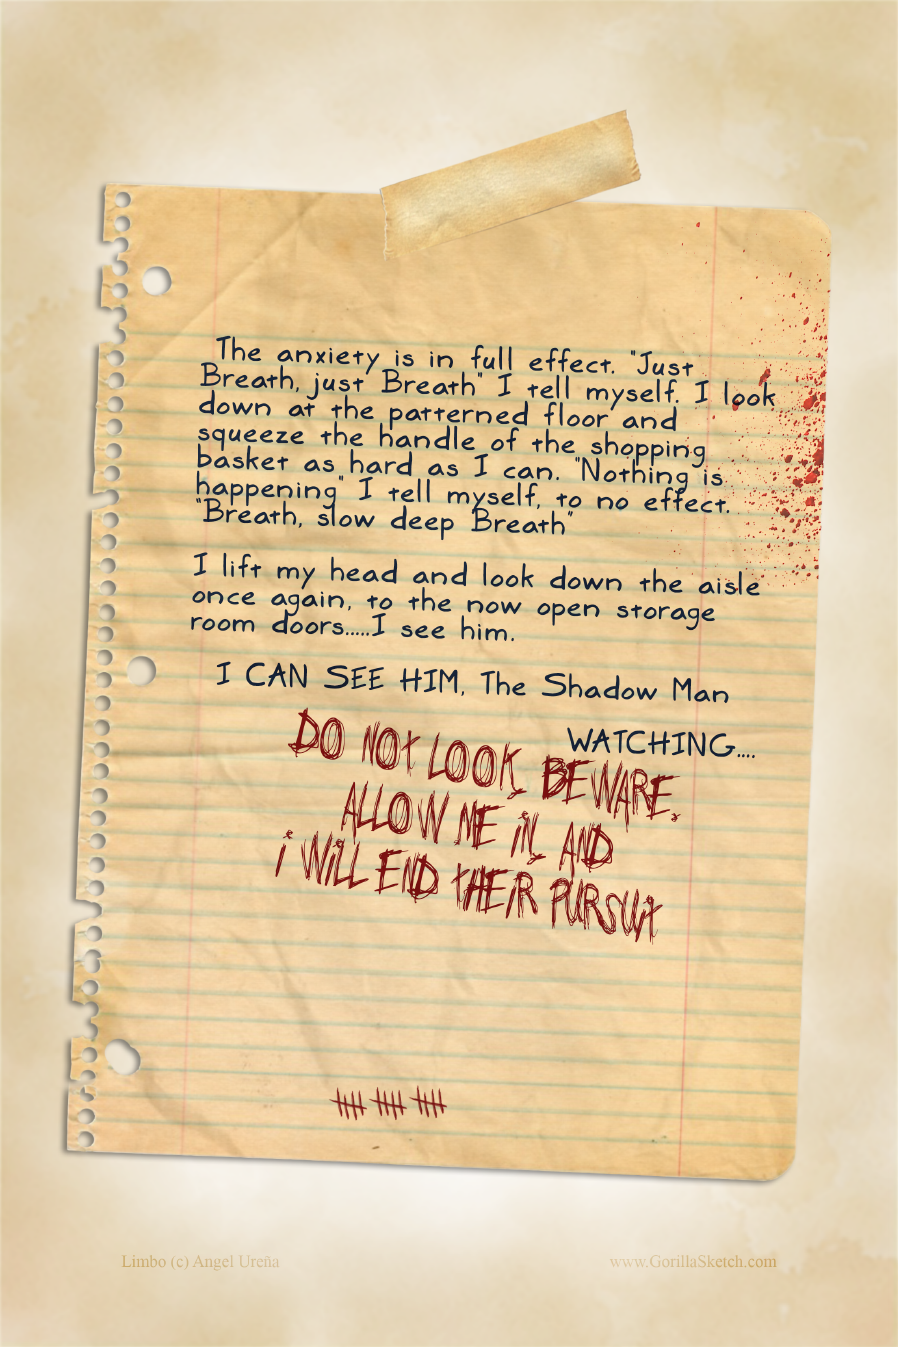 The anxiety is in full effect. "Just
Breath, just Breath" I tell myself. I look
down at the patterned floor and
squeeze the handle of the shopping
basket as hard as I can. "Nothing is
happening" I tell myself, to no effect.
"Breath, slow deep Breath"
I lift my head and look down the aisle
once again, to the now open storage
room doors.....I see him.
I CAN SEE HIM, The Shadow Man
WATCHING....
DO NOT LOOK, BEWARE,
ALLOW ME iN, AND
i WiLL END tHEiR PURSUit
Limbo (c) Angel Ureña
www.GorillaSketch.com